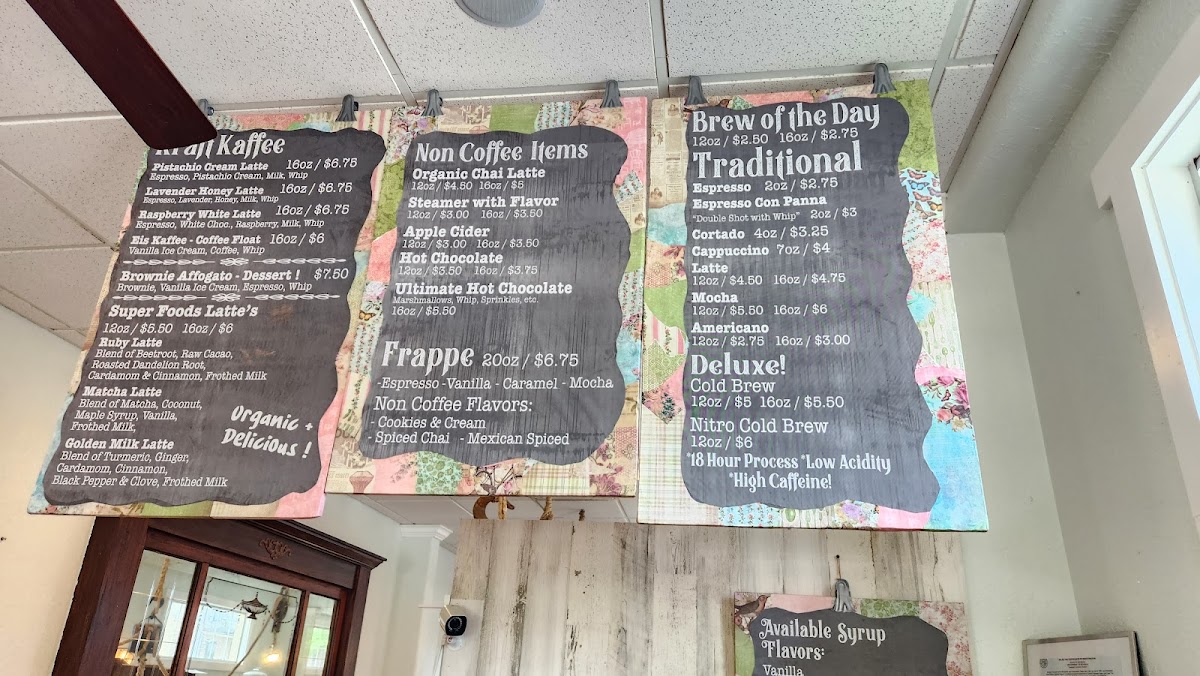 Kraft Kaffee
Pistachio Cream Latte 16oz / $6.75
Espresso, Pistachio Cream, Milk, Whip
Lavender Honey Latte 16oz / $6.75
Espresso, Lavender, Honey, Milk, Whip
Raspberry White Latte 16oz / $6.75
Espresso, White Choc., Raspberry, Milk, Whip
Eis Kaffee - Coffee Float 16oz / $6
Vanilla Ice Cream, Coffee, Whip
Brownie Affogato - Dessert ! $7.50
Brownie, Vanilla Ice Cream, Espresso, Whip
Super Foods Latte's
12oz / $5.50 16oz / $6
Ruby Latte
Blend of Beetroot, Raw Cacao,
Roasted Dandelion Root,
Cardamom & Cinnamon, Frothed Milk
Matcha Latte
Blend of Matcha, Coconut,
Maple Syrup, Vanilla,
Frothed Milk,
Organic +
Delicious !
Golden Milk Latte
Blend of Turmeric, Ginger,
Cardamom, Cinnamon,
Black Pepper & Clove, Frothed Milk
Non Coffee Items
Organic Chai Latte
12oz / $4.50 16oz / $5
Steamer with Flavor
12oz / $3.00 16oz / $3.50
Apple Cider
12oz / $3.00 16oz / $3.50
Hot Chocolate
12oz / $3.50 16oz / $3.75
Ultimate Hot Chocolate
Marshmallows, Whip, Sprinkles, etc.
16oz / $5.50
Frappe 20oz / $6.75
-Espresso -Vanilla - Caramel - Mocha
Non Coffee Flavors:
- Cookies & Cream
- Spiced Chai - Mexican Spiced
Brew of the Day
12oz / $2.50 16oz / $2.75
Traditional
Espresso 2oz / $2.75
Espresso Con Panna
"Double Shot with Whip" 2oz / $3
Cortado 4oz / $3.25
Cappuccino 7oz / $4
Latte
12oz / $4.50 16oz / $4.75
Mocha
12oz / $5.50 16oz / $6
Americano
12oz / $2.75 16oz / $3.00
Deluxe!
Cold Brew
12oz / $5 16oz / $5.50
Nitro Cold Brew
12oz / $6
*18 Hour Process *Low Acidity
*High Caffeine!
Available Syrup
Flavors:
Vanilla